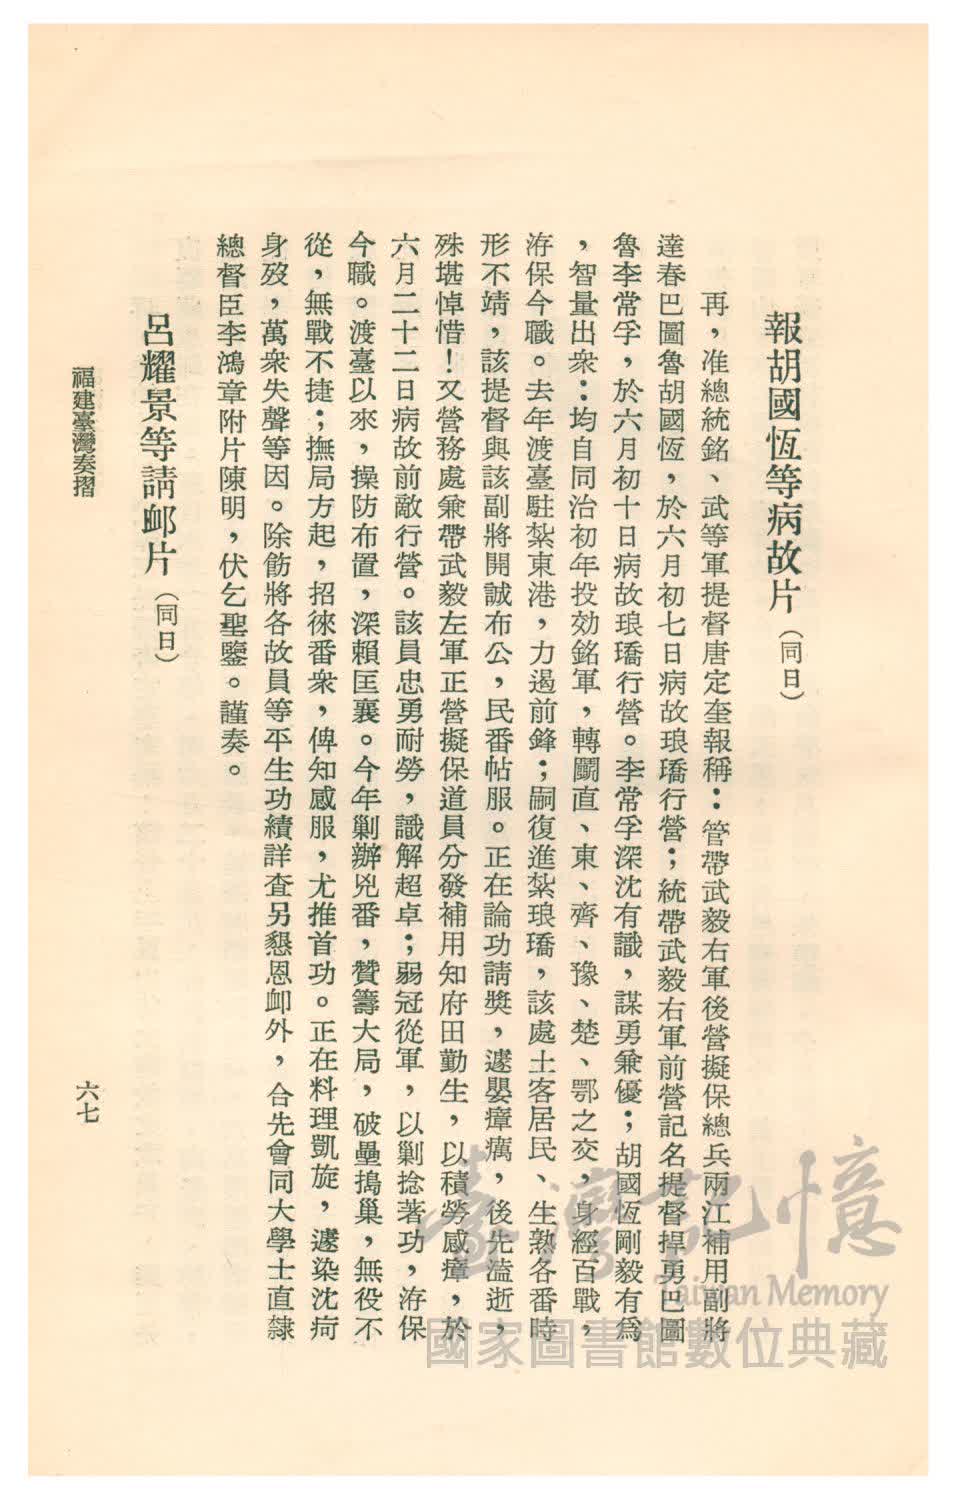 報胡國恆等病故片(同日)
再，准總統銘、武等軍提督唐定奎報稱：管帶武毅右軍後營擬保總兵兩江補用副將
達春巴圖魯胡國恆，於六月初七日病故琅𤩝行營；統帶武毅右軍前營記名提督捍勇巴圖
魯李常孚，於六月初十日病故琅𤩝行營。李常孚深沈有識，謀勇兼優；胡國恆剛毅有爲
，智量出衆：均自同治初年投効銘軍，轉鬭直、東、齊、豫、楚、鄂之交，身經百戰，
洊保今職。去年渡臺駐紮東港，力遏前鋒；嗣復進紮琅𤩝，該處土客居民、生熟各番時
形不靖，該提督與該副將開誠布公，民番帖服。正在論功請獎，遽嬰瘴癘，後先溘逝，
殊堪悼惜！又營務處兼帶武毅左軍正營擬保道員分發補用知府田勤生，以積勞感瘴，於
六月二十二日病故前敵行營。該員忠勇耐勞，識解超卓；弱冠從軍，以剿捻著功，洊保
今職。渡臺以來，操防布置，深賴匡襄。今年剿辦兇番，贊籌大局，破壘搗巢，無役不
從，無戰不捷；撫局方起，招徠番衆，俾知感服，尤推首功。正在料理凱旋，遽染沈疴
身歿，萬衆失聲等因。除飭將各故員等平生功績詳查另懇恩卹外，合先會同大學士直隸
總督臣李鴻章附片陳明，伏乞聖鑒。謹奏。
呂耀景等請卹片(同日)
福建臺灣奏摺
六七
臺灣記憶
Taiwan Memory
國家圖書館數位典藏